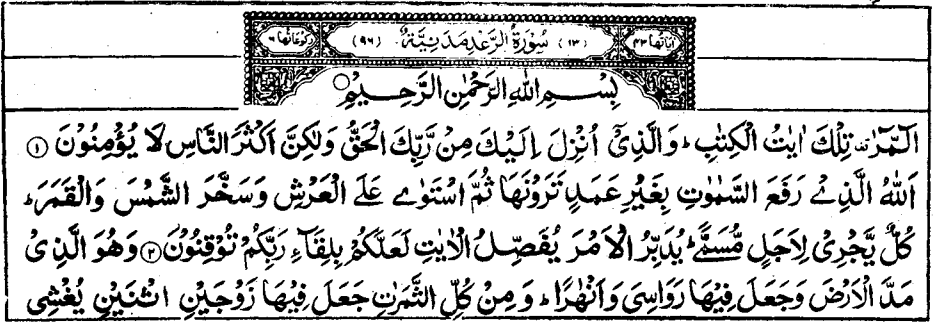 اٰیاتها ۴۳ (۱۳) سُوْرَةُ الرَّعْدِ مَدَنِيَّةٌ (۹۶) رکوعاتها ۶
بِسْمِ اللهِ الرَّحْمٰنِ الرَّحِيْمِ
الٓمّٓرٰ تِلْكَ اٰيٰتُ الْكِتٰبِ ؕ وَالَّذِيْۤ اُنْزِلَ اِلَيْكَ مِنْ رَّبِّكَ الْحَقُّ وَلٰكِنَّ اَكْثَرَ النَّاسِ لَا يُؤْمِنُوْنَ ۱
اَللهُ الَّذِيْ رَفَعَ السَّمٰوٰتِ بِغَيْرِ عَمَدٍ تَرَوْنَهَا ثُمَّ اسْتَوٰى عَلَى الْعَرْشِ وَسَخَّرَ الشَّمْسَ وَالْقَمَرَ ؕ
كُلٌّ يَّجْرِيْ لِاَجَلٍ مُّسَمًّى ؕ يُدَبِّرُ الْاَمْرَ يُفَصِّلُ الْاٰيٰتِ لَعَلَّكُمْ بِلِقَآءِ رَبِّكُمْ تُوْقِنُوْنَ ۲ وَهُوَ الَّذِيْ
مَدَّ الْاَرْضَ وَجَعَلَ فِيْهَا رَوَاسِيَ وَاَنْهٰرًا ؕ وَمِنْ كُلِّ الثَّمَرٰتِ جَعَلَ فِيْهَا زَوْجَيْنِ اثْنَيْنِ يُغْشِي